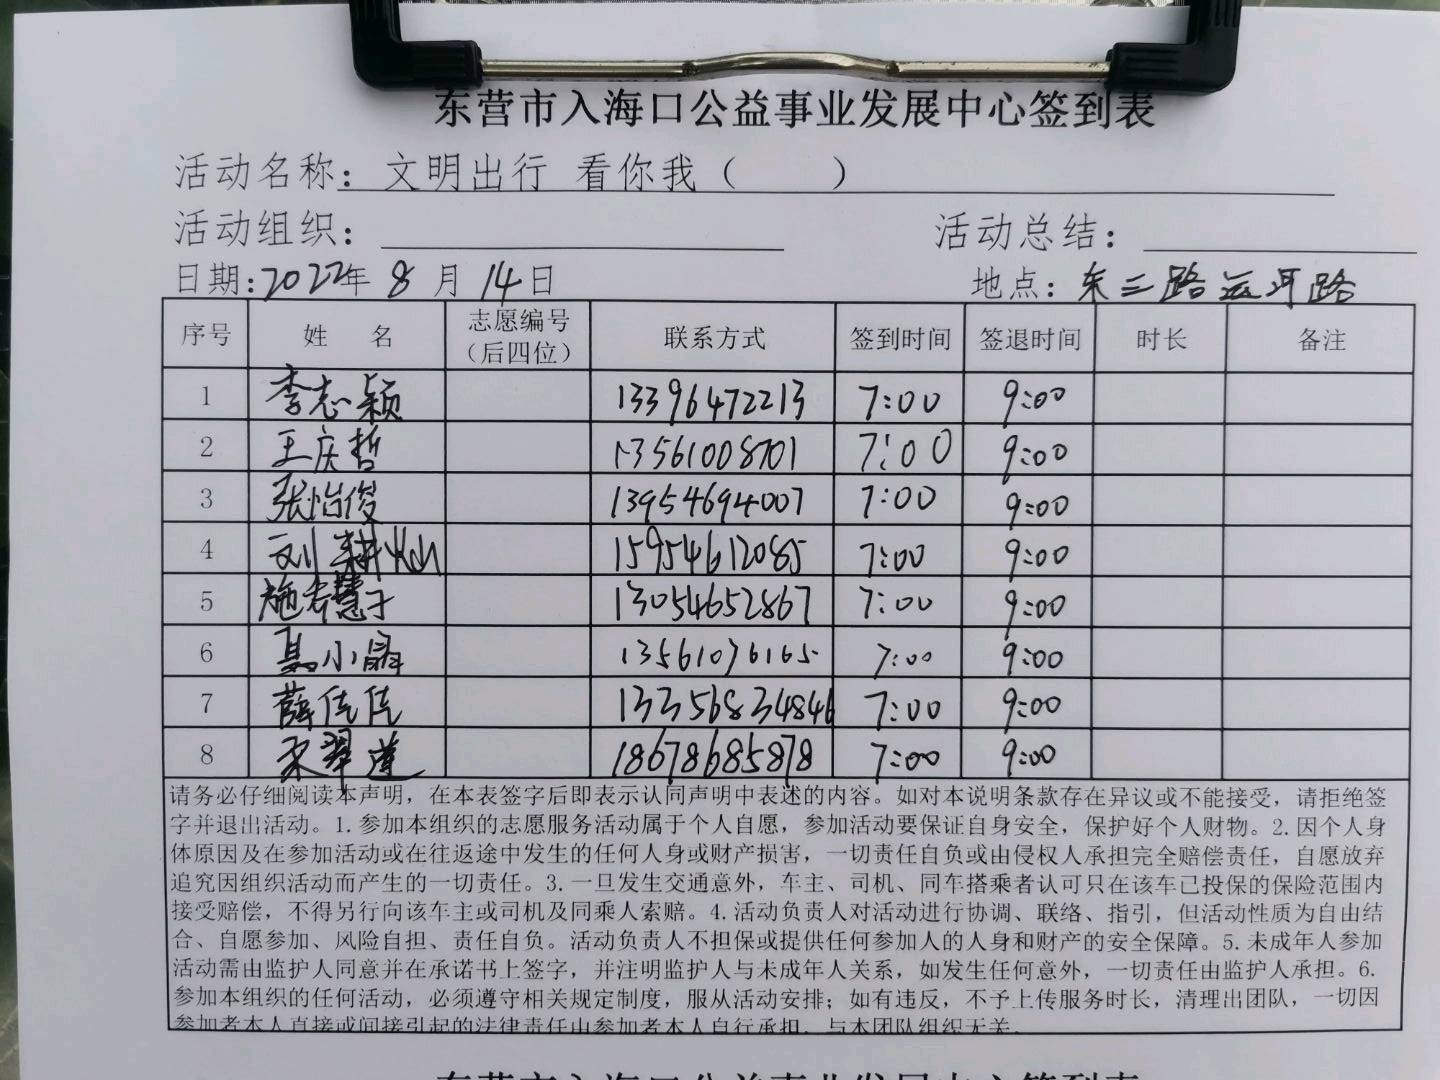 东营市入海口公益事业发展中心签到表
活动名称：文明出行 看你我（ ）
活动组织： 活动总结：
日期:2022年 8 月 14日 地点：东三路运河路
序号 姓 名 志愿编号（后四位） 联系方式 签到时间 签退时间 时长 备注
1 李志颖 13396472213 7:00 9:00
2 王庆哲 13561008701 7:00 9:00
3 张怡俊 13954694007 7:00 9:00
4 刘 15954612085 7:00 9:00
5 施 13054652867 7:00 9:00
6 小 13561076165 7:00 9:00
7 薛佳佳 13356834846 7:00 9:00
8 宋翠莲 18678685878 7:00 9:00
请务必仔细阅读本声明，在本表签字后即表示认同声明中表述的内容。如对本说明条款存在异议或不能接受，请拒绝签
字并退出活动。1.参加本组织的志愿服务活动属于个人自愿，参加活动要保证自身安全，保护好个人财物。2.因个人身
体原因及在参加活动或在往返途中发生的任何人身或财产损害，一切责任自负或由侵权人承担完全赔偿责任，自愿放弃
追究因组织活动而产生的一切责任。3.一旦发生交通意外，车主、司机、同车搭乘者认可只在该车已投保的保险范围内
接受赔偿，不得另行向该车主或司机及同乘人索赔。4.活动负责人对活动进行协调、联络、指引，但活动性质为自由结
合、自愿参加、风险自担、责任自负。活动负责人不担保或提供任何参加人的人身和财产的安全保障。5.未成年人参加
活动需由监护人同意并在承诺书上签字，并注明监护人与未成年人关系，如发生任何意外，一切责任由监护人承担。6.
参加本组织的任何活动，必须遵守相关规定制度，服从活动安排；如有违反，不予上传服务时长，清理出团队，一切因
参加者本人直接或间接引起的法律责任由参加者本人自行承担，与本团队组织无关。
东营市入海口公益事业发展中心签到表